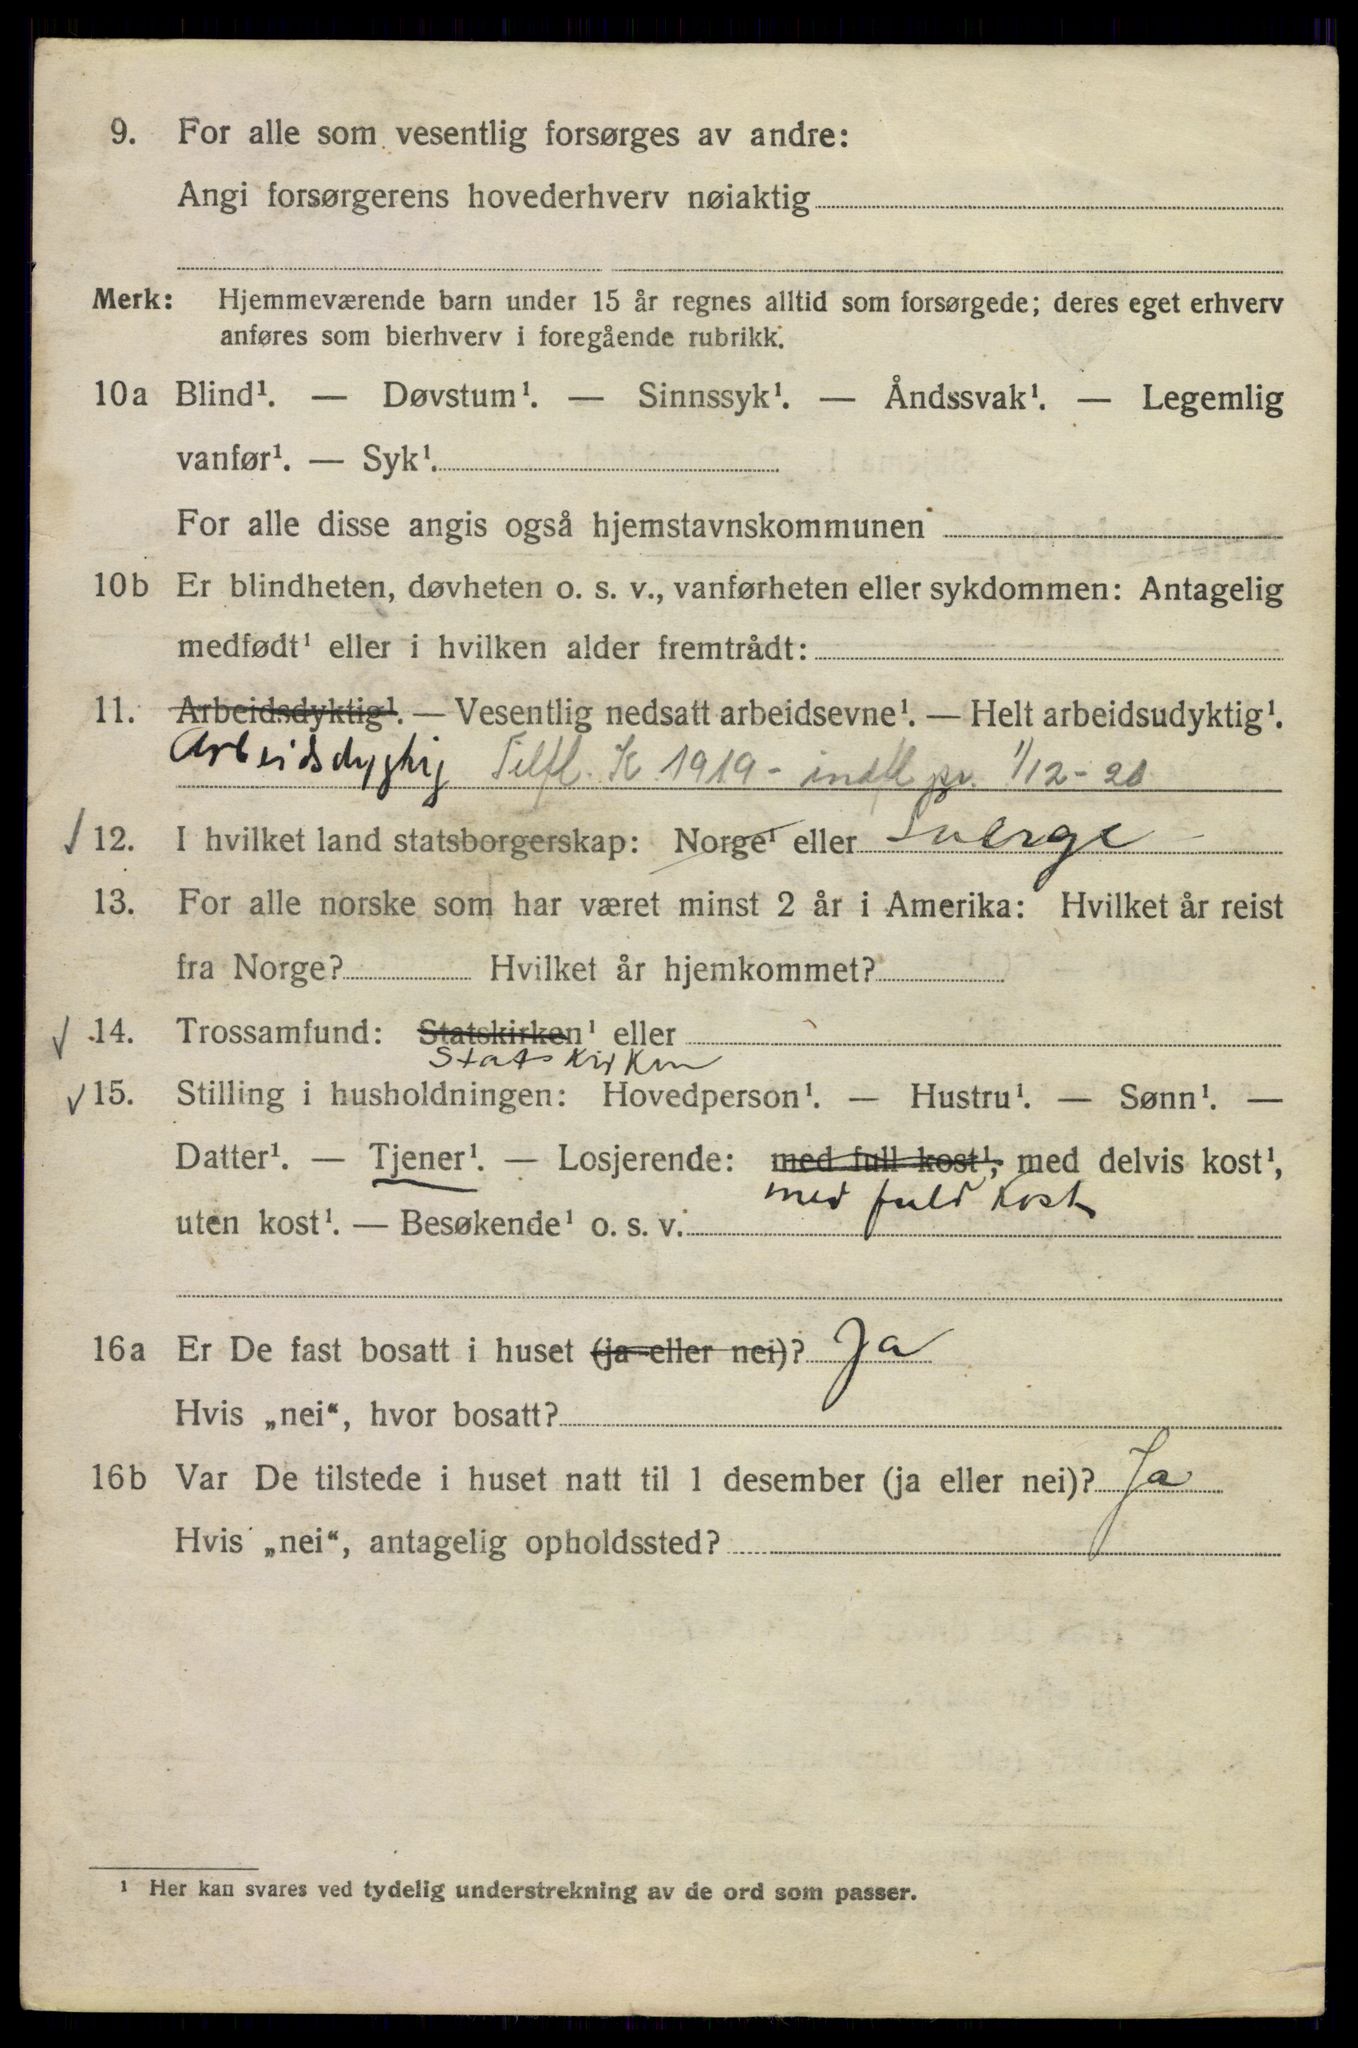 9. For alle som vesentlig forsørges av andre:
Angi forsørgerens hovederhverv nøiaktig
Merk: Hjemmeværende barn under 15 år regnes alltid som forsørgede; deres eget erhverv
anføres som bierhverv i foregående rubrikk.
10a Blind¹. — Døvstum¹. — Sinnssyk¹. — Åndssvak¹. — Legemlig
vanfør¹. — Syk¹.
For alle disse angis også hjemstavnskommunen
10b Er blindheten, døvheten o. s. v., vanførheten eller sykdommen: Antagelig
medfødt¹ eller i hvilken alder fremtrådt:
11. Arbeidsdyktig¹. — Vesentlig nedsatt arbeidsevne¹. — Helt arbeidsudyktig¹.
Arbeidsdygtig Tilfl. K 1919 - indfl pr. 1/12 - 20
12. I hvilket land statsborgerskap: Norge¹ eller Sverge
13. For alle norske som har været minst 2 år i Amerika: Hvilket år reist
fra Norge? Hvilket år hjemkommet?
14. Trossamfund: Statskirken¹ eller
Statskirken
15. Stilling i husholdningen: Hovedperson¹. — Hustru¹. — Sønn¹. —
Datter¹. — Tjener¹. — Losjerende: med full kost¹, med delvis kost¹,
med fuld kost
uten kost¹. — Besøkende¹ o. s. v.
16a Er De fast bosatt i huset (ja eller nei)? Ja
Hvis „nei“, hvor bosatt?
16b Var De tilstede i huset natt til 1 desember (ja eller nei)? Ja
Hvis „nei“, antagelig opholdssted?
¹ Her kan svares ved tydelig understrekning av de ord som passer.